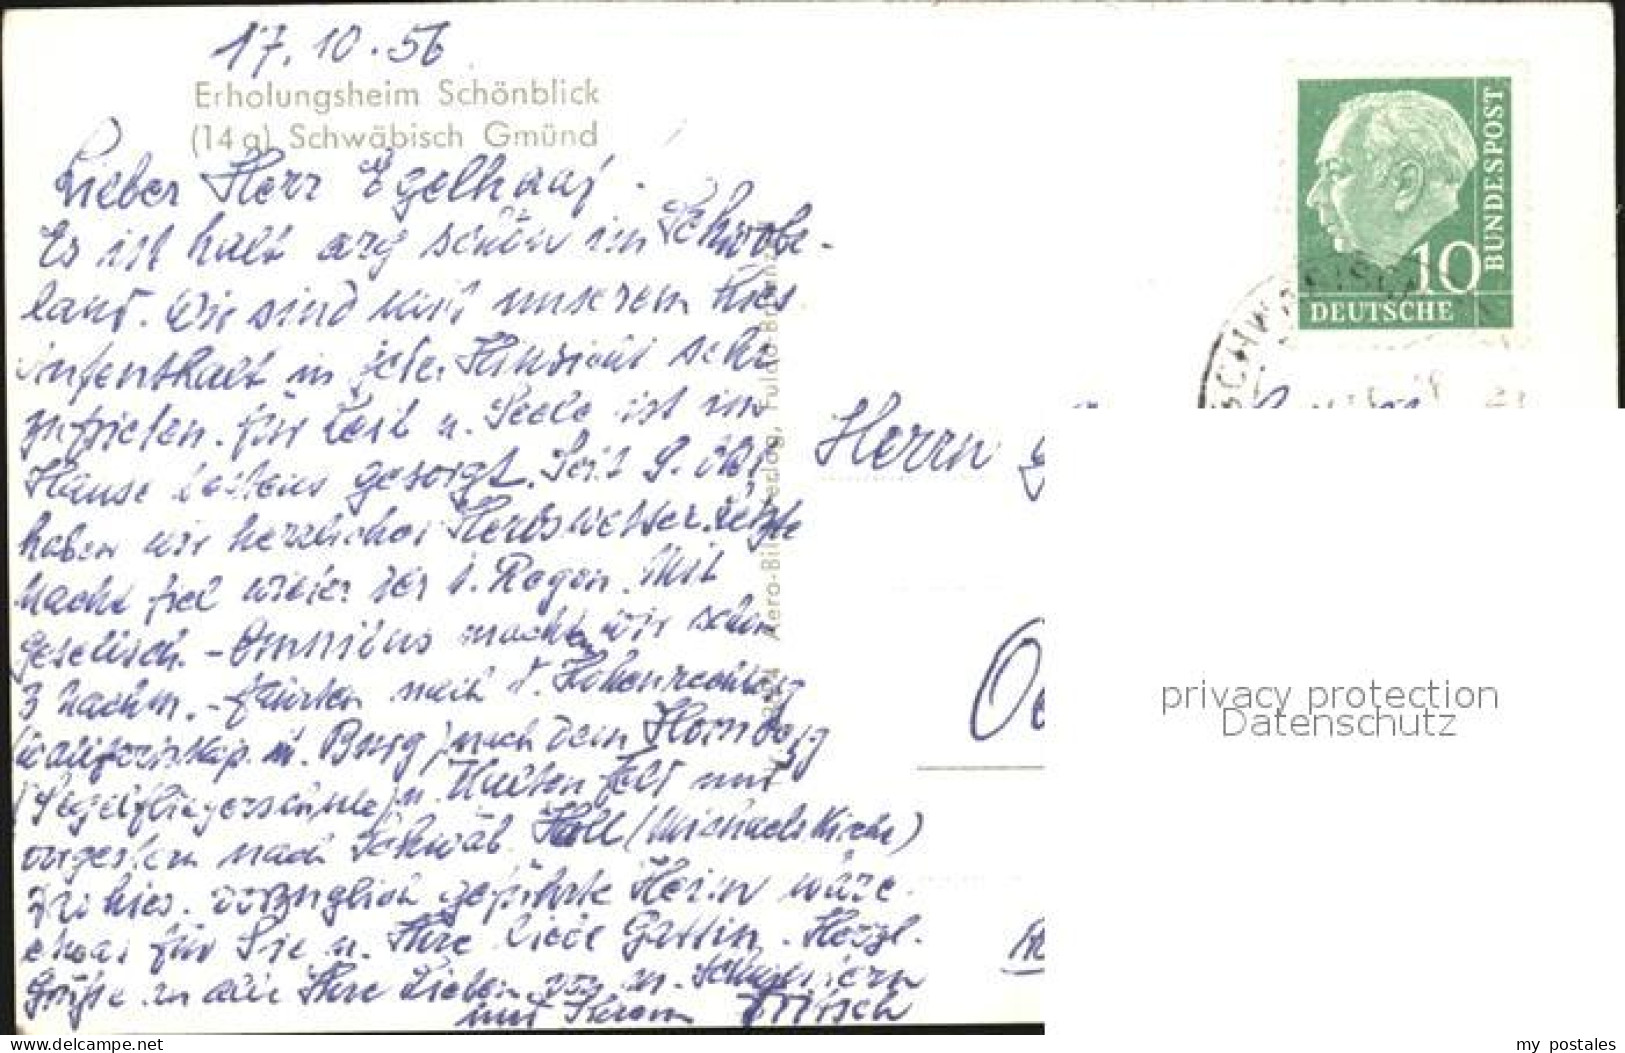 17.10.56
Erholungsheim Schönblick
(14 a) Schwäbisch Gmünd
Lieber Herr Egelhaaf.
Es ist halt arg schön im Schwobe-
land. Wir sind mit unserem hies.
Aufenthalt in jeder Hinsicht sehr
zufrieden. Für Leib u. Seele ist im
Hause bestens gesorgt. Seit 9. Okt.
haben wir herrliches Herbstwetter. Letzte
Nacht fiel wieder der 1. Regen. Mit
Gesellsch.-Omnibus machten wir schon
3 Nachm.-fahrten nach d. Hohenrechberg
m. Burg) nach dem Hornberg
(Segelfliegerschule) u. Feld und
vorgestern nach Schwäb. Hall (Michaelskirche)
hies. vorzügich geführte Heim wäre
etwas für Sie u. Ihre liebe Gattin. Herzl.
Grüße an alle Ihre Lieben von m.
und Ihrem Fritsch
Aero-Bild-Verlag, Fulda-Bronnzell
Herrn
BUNDESPOST
10
DEUTSCHE
SCHWÄBISCH
privacy protection
Datenschutz
www.delcampe.net
my_postales